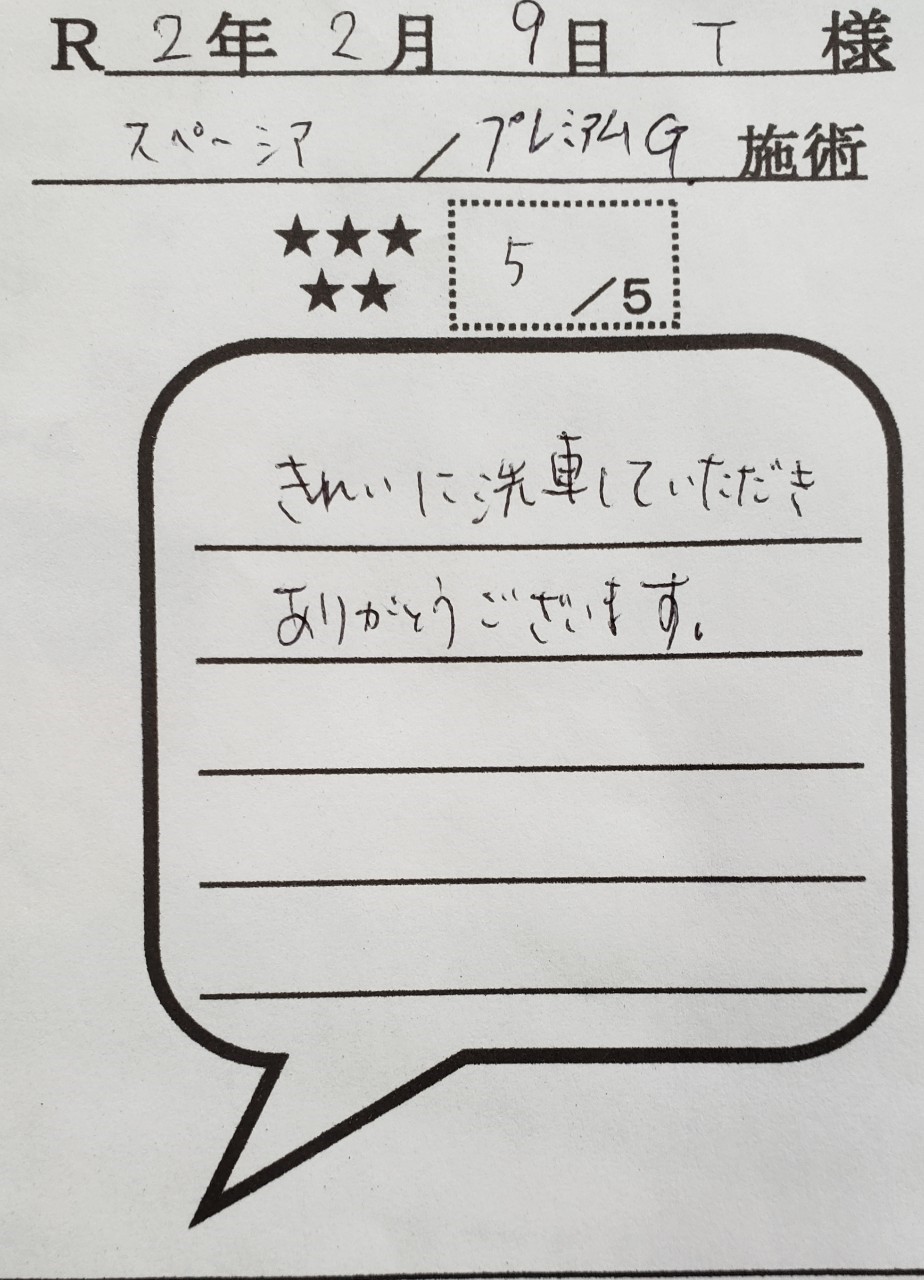 R 2年 2月 9日 T 様
スペーシア / プレミアムG 施術
★★★
★★
5 / 5
きれいに洗車していただき
ありがとうございます。